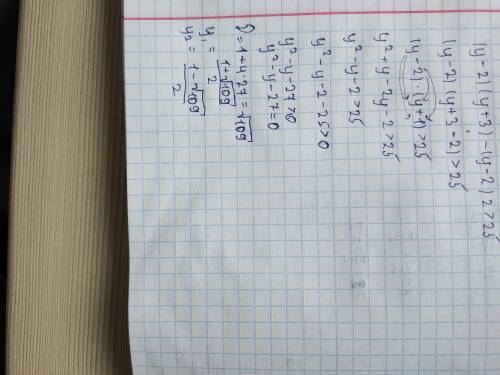 (y-2)(y+3)-(y-2)2>25
(y-2)(y+3-2)>25
(y-2)·(y+1)>25
y²+y-2y-2>25
y²-y-2>25
y²-y-2-25>0
y²-y-27>0
y²-y-27=0
D=1+4·27=√109
y₁=\frac{1+√109}{2}
y₂=\frac{1-√109}{2}